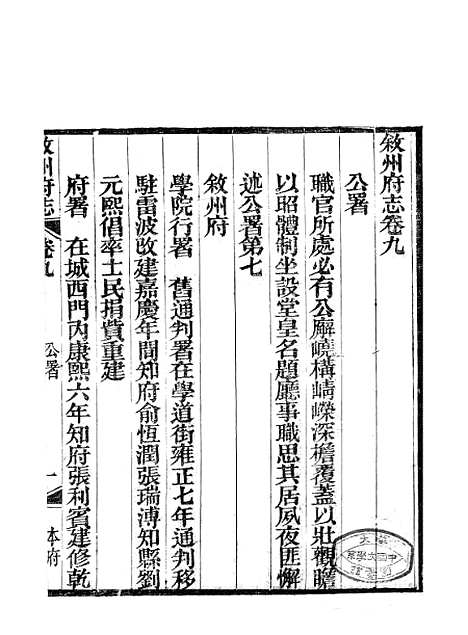 敘州府志卷九
公署
職官所處必有公廨嶢構崝嶸深檐覆蓋以壯觀瞻
以昭體制坐設堂皇名題廳事職思其居夙夜匪懈
述公署第七
敘州府
學院行署 舊通判署在學道街雍正七年通判移
駐雷波改建嘉慶年間知府俞恒潤張瑞溥知縣劉
元熙倡率士民捐貲重建
府署 在城西門內康熙六年知府張利賓建修乾
敘州府志 卷九 公署 一 本府